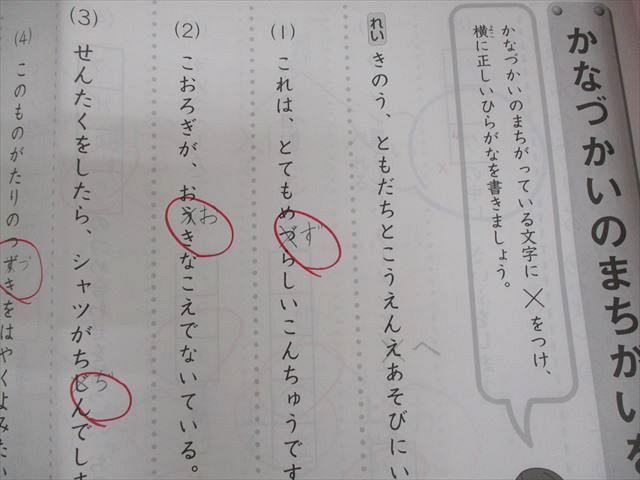 かなづかいのまちがいを
かなづかいのまちがっている文字に×をつけ、
よこ
横に正しいひらがなを書きましょう。
れい きのう、ともだちとこうえんえあそびにい
へ
(1) これは、とてもめづらしいこんちゅうです
ず
(2) こおろぎが、おうきなこえでないている。
お
(3) せんたくをしたら、シャツがちじんでしま
ぢ
(4) このものがたりのつずきをはやくよみたい
づ